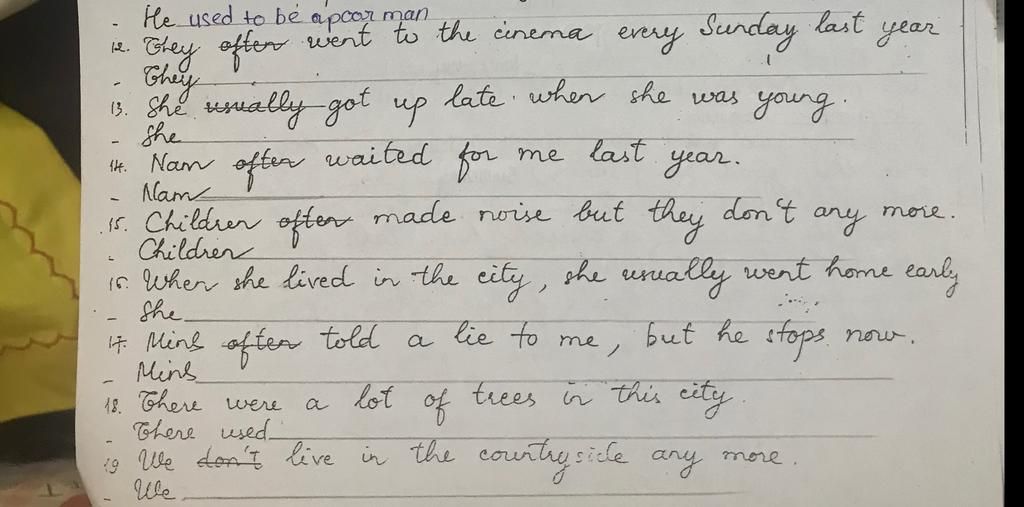 - He used to be a poor man
12. They often went to the cinema every Sunday last year
- They
13. She usually got up late. when she was young.
- She
14. Nam often waited for me last year.
- Nam
15. Children often made noise but they don't any more.
- Children
16. When she lived in the city, she usually went home early
- She
17. Minh often told a lie to me, but he stops now.
- Minh
18. There were a lot of trees in this city.
- There used
19 We don't live in the countryside any more.
- We